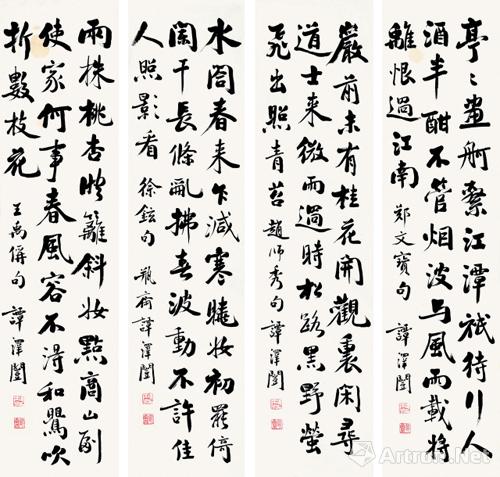 亭〻畫舸繫江潭祇待行人
酒半酣不管烟波与風雨載將
離恨過江南 鄭文寶句 譚澤闓
巖前未有桂花開觀裏閑尋
道士来微雨過時松路黑野螢
飛出照青苔 趙師秀句 譚澤闓
水閣春来乍減寒曉妝初罷倚
闌干長條亂拂春波動不許佳
人照影看 徐鉉句 瓶齋譚澤闓
兩株桃杏映籬斜妝點商山副
使家何事春風容不得和鶯吹
折數枝花 王禹偁句 譚澤闓
Artron.Net